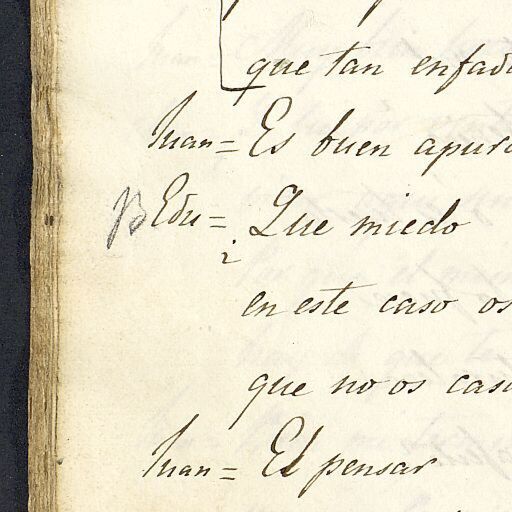 que tan enfad
Juan = Es buen apur
B Edu = Que miedo
¿
en este caso os
que no os cas
Juan = El pensar